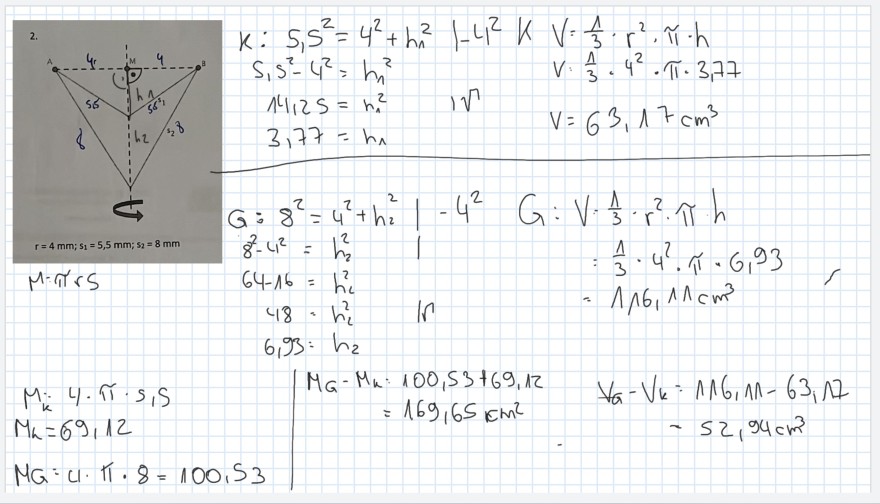 2.
A 4r M 4 B
h1
56 56 s1
h2
8 s2 8
r = 4 mm; s1 = 5,5 mm; s2 = 8 mm
M = πrs
K: 5,5² = 4² + h1² | -4²
5,5² - 4² = h1²
14,25 = h1² | √
3,77 = h1
K V = 1/3 · r² · π · h
V = 1/3 · 4² · π · 3,77
V = 63,17 cm³
G: 8² = 4² + h2² | - 4²
8² - 4² = h2² |
64 - 16 = h2²
48 = h2² | √
6,93 = h2
G: V = 1/3 · r² · π · h
= 1/3 · 4² · π · 6,93
= 116,11 cm³
Mk = 4 · π · 5,5
Mk = 69,12
MG = 4 · π · 8 = 100,53
MG - Mk = 100,53 + 69,12
= 169,65 cm²
VG - Vk = 116,11 - 63,17
= 52,94 cm³